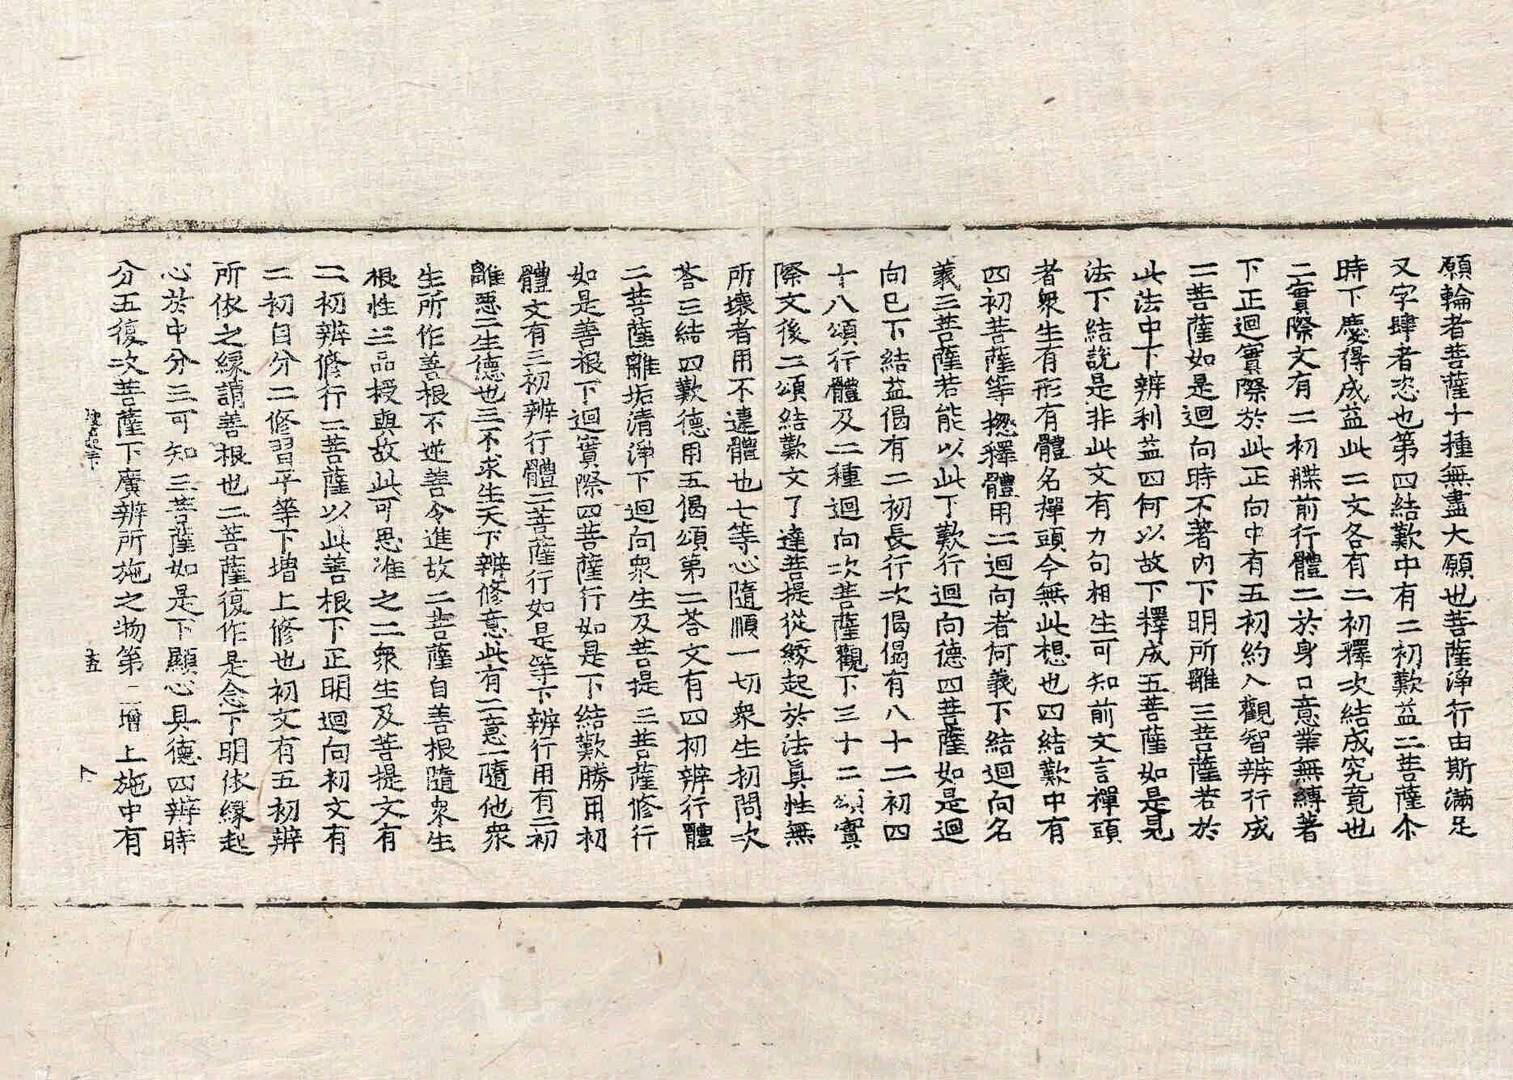 願輪者菩薩十種無盡大願也菩薩淨行由斯滿足
又字肆者恣也第四結歎中有二初歎益二菩薩尒
時下慶得成益此二文各有二初釋次結成究竟也
二實際文有二初牒前行體二於身口意業無縛著
下正迴實際於此正向中有五初約入觀智辨行成
二菩薩如是迴向時不著內下明所離三菩薩若於
此法中下辨利益四何以故下釋成五菩薩如是見
法下結說是非此文有力句相生可知前文言禪頭
者衆生有形有體名禪頭今無此想也四結歎中有
四初菩薩等揔釋體用二迴向者何義下結迴向名
義三菩薩若能以此下歎行迴向德四菩薩如是迴
向已下結益偈有二初長行次偈偈有八十二初四
十八頌行體及二種迴向次菩薩觀下三十二頌實
際文後二頌結歎文了達菩提從緣起於法真性無
所壞者用不違體也七等心隨順一切衆生初問次
荅三結四歎德用五偈頌第二荅文有四初辨行體
二菩薩離垢清淨下迴向衆生及菩提三菩薩修行
如是善根下迴實際四菩薩行如是下結歎勝用初
體文有三初辨行體二菩薩行如是等下辨行用有二初
離惡二生德也三不求生天下辨修意此有二意一隨他衆
生所作善根不逆善令進故二菩薩自善根隨衆生
根性三品授與故此可思准之二衆生及菩提文有
二初辨修行二菩薩以此善根下正明迴向初文有
二初自分二修習平等下增上修也初文有五初辨
所依之緣謂善根也二菩薩復作是念下明依緣起
心於中分三可知三菩薩如是下顯心具德四辨時
分五復次菩薩下廣辨所施之物第二增上施中有